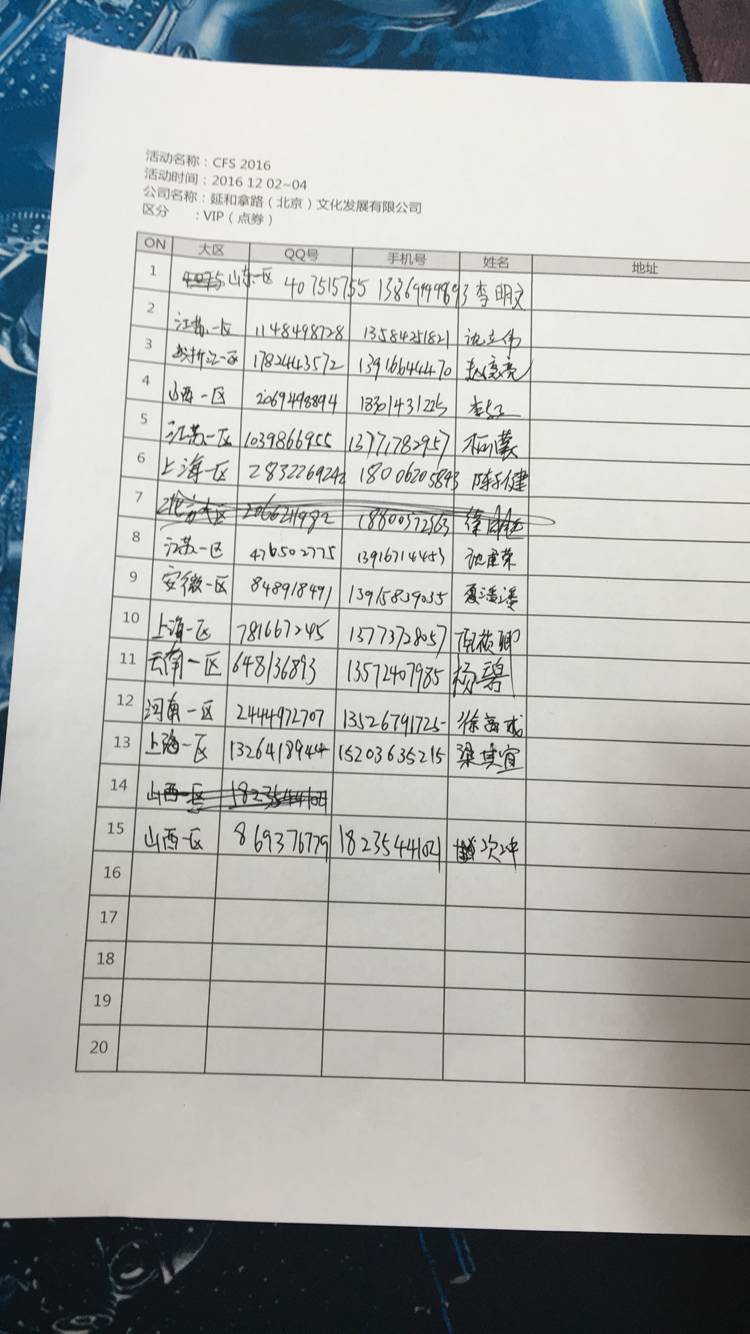 活动名称：CFS 2016
活动时间：2016 12 02~04
公司名称：延和拿路（北京）文化发展有限公司
区分 ：VIP（点券）
ON 大区 QQ号 手机号 姓名 地址
1 山东一区 407515755 13869499893 李明文
2 江苏一区 1148498728 13584251821 沈立伟
3 浙江一区 1782443572 13916644470 赵俊亮
4 山西一区 2069498894 18301431225 李
5 江苏一区 1039866955 13771782957
6 上海一区 2832269242 18006205843 陈纪健
7 北方大区 2066211982 18800572563
8 江苏一区 476502775 13916714453
9 安徽一区 848918491 13915839035 夏潘潘
10 上海一区 781667245 15773728057
11 云南一区 648136893 13572407985 杨碧
12 河南一区 2444972707 13526791725
13 上海一区 1326418944 15203635215 梁其宜
14 山西一区
15 山西一区 869376779 18235441021 次冲
16
17
18
19
20